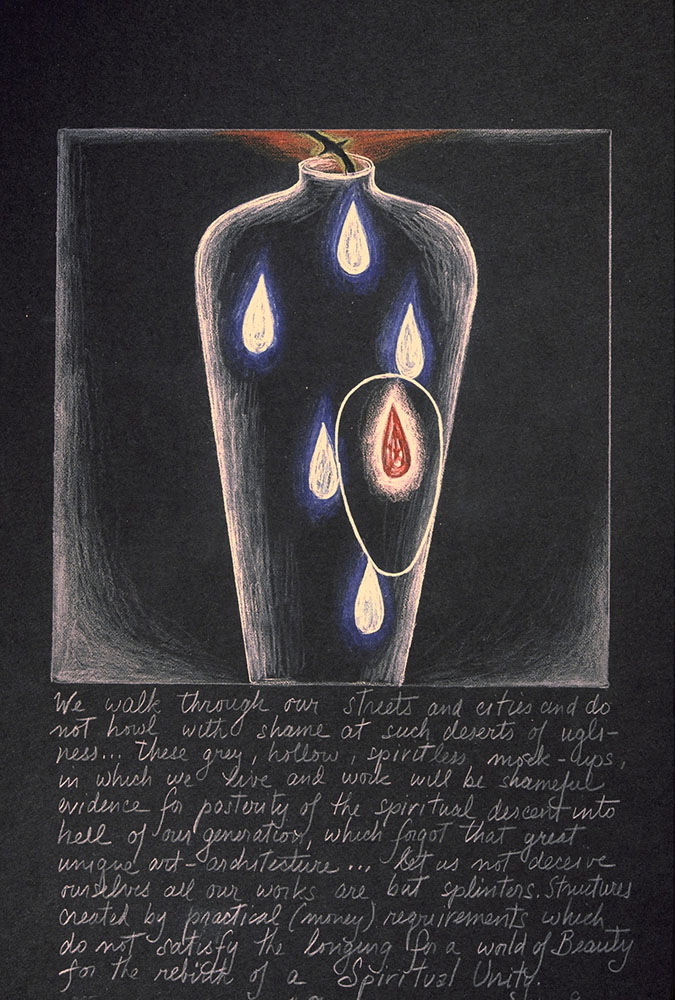 We walk through our streets and cities and do
not howl with shame at such deserts of ugli-
ness... these grey, hollow, spiritless mock-ups,
in which we live and work will be shameful
evidence for posterity of the spiritual descent into
hell of our generation, which forgot that great
unique art - architecture... let us not deceive
ourselves all our works are but splinters. Structures
created by practical (money) requirements which
do not satisfy the longing for a world of Beauty
for the rebirth of a Spiritual Unity.